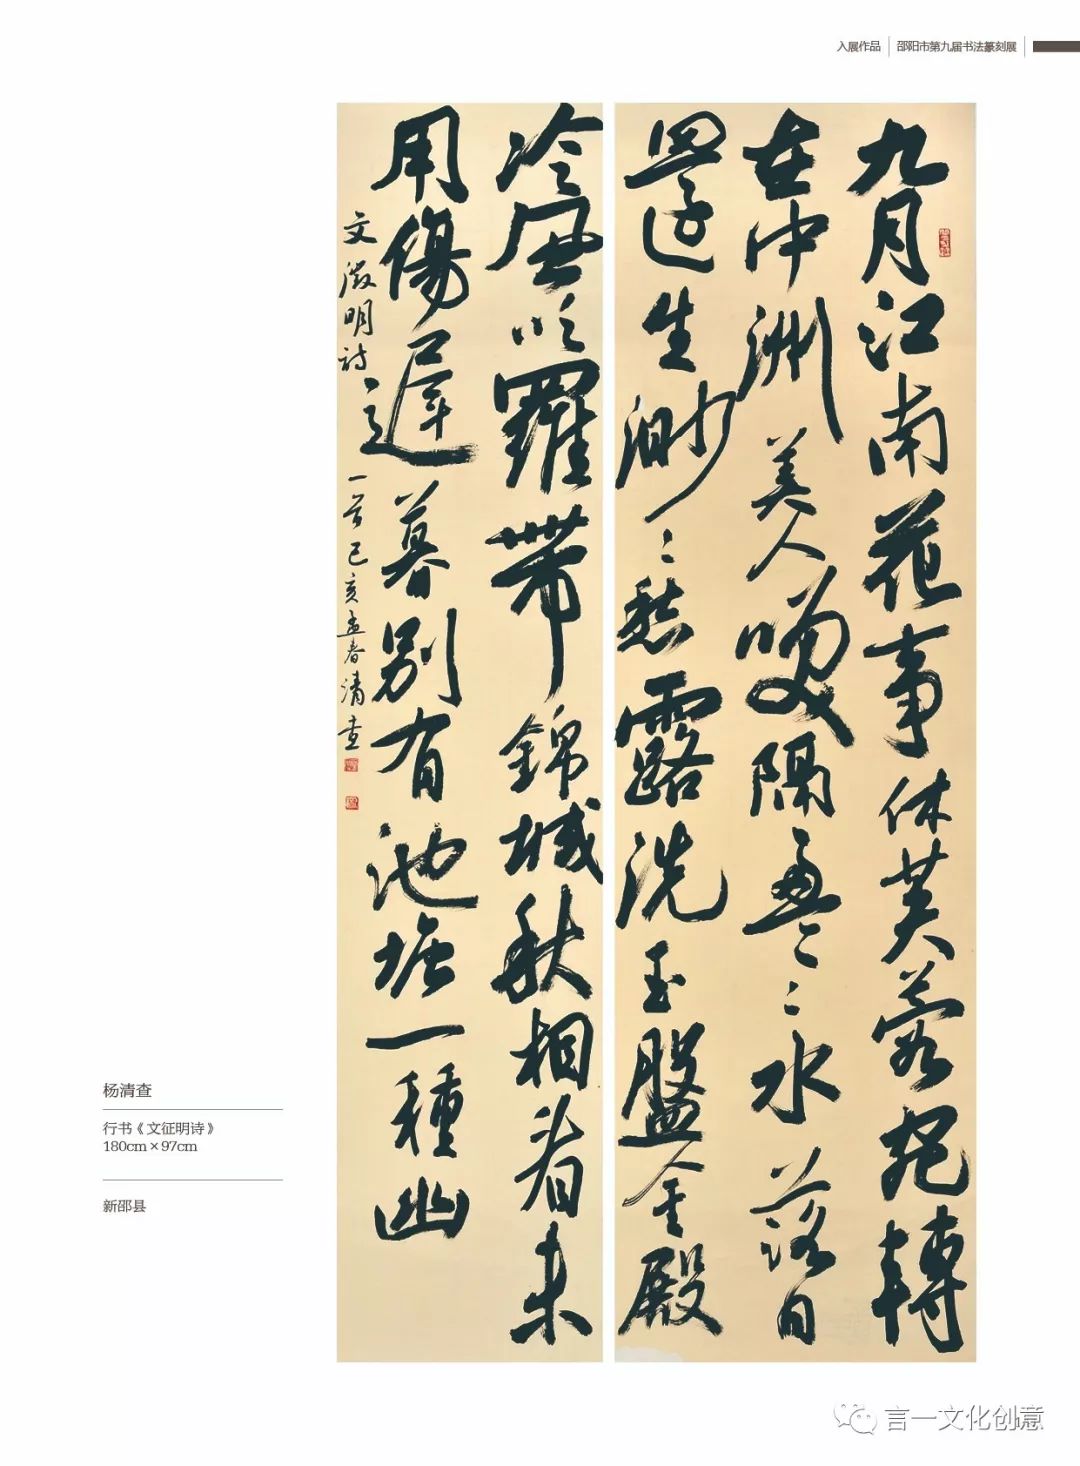 入展作品 邵阳市第九届书法篆刻展
九月江南花事休芙蓉宛轉
在中洲美人笑隔盈盈水落日
還生渺〻愁露洗玉盤金殿
冷風吹羅帶錦城秋相看未
用傷遲暮別有池塘一種幽
文徵明詩一首己亥孟春清查
杨清查
行书《文征明诗》
180cm×97cm
新邵县
言一文化创意